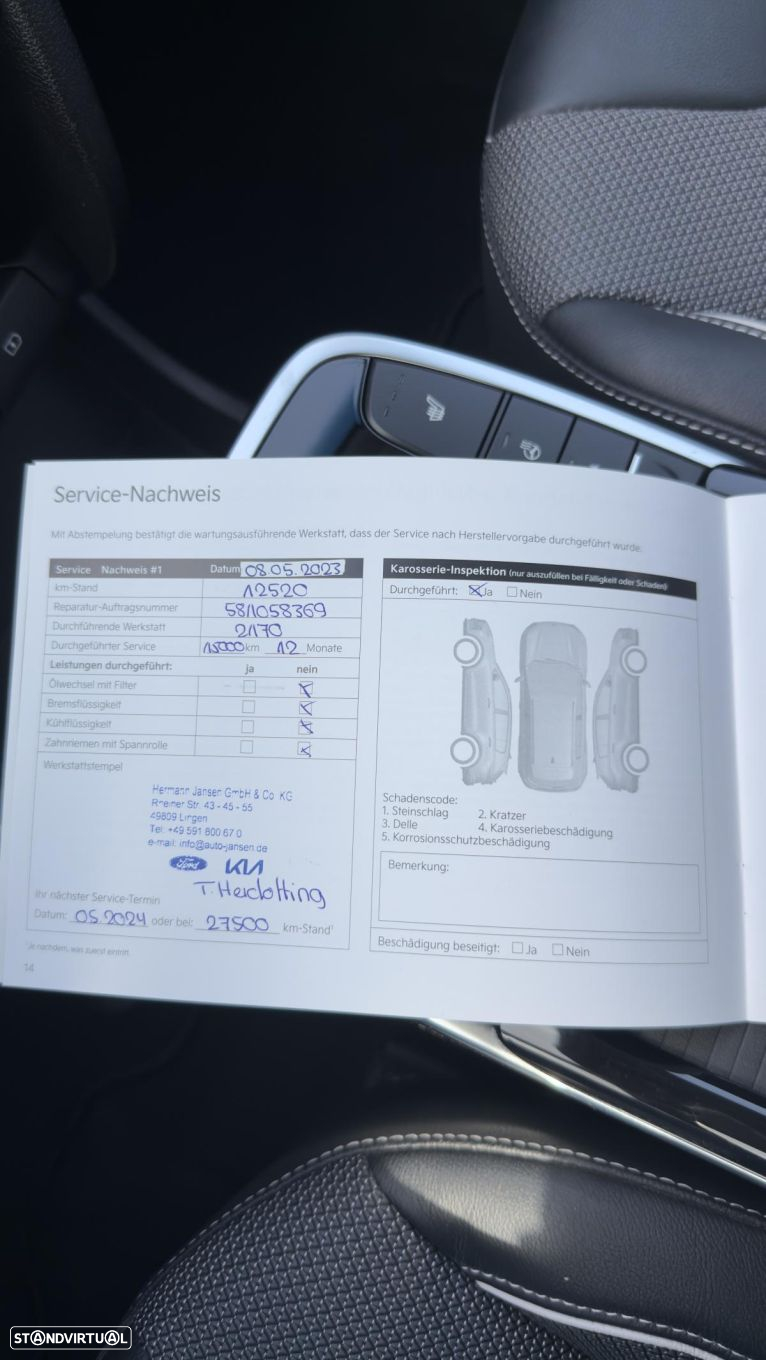 Service-Nachweis
Mit Abstempelung bestätigt die wartungsausführende Werkstatt, dass der Service nach Herstellervorgabe durchgeführt wurde.
Service Nachweis #1 Datum 08.05.2023
km-Stand 12520
Reparatur-Auftragsnummer 5811058369
Durchführende Werkstatt 21170
Durchgeführter Service 15000 km 12 Monate
Leistungen durchgeführt: ja nein
Ölwechsel mit Filter
Bremsflüssigkeit
Kühlflüssigkeit
Zahnriemen mit Spannrolle
Werkstattstempel
Hermann Jansen GmbH & Co. KG
Rheiner Str. 43 - 45 - 55
49809 Lingen
Tel: +49 591 800 67 0
e-mail: info@auto-jansen.de
Ford KIA
Ihr nächster Service-Termin
Datum: 05.2024 oder bei: 27500 km-Stand¹
¹Je nachdem, was zuerst eintritt.
14
Karosserie-Inspektion (nur auszufüllen bei Fälligkeit oder Schaden)
Durchgeführt: Ja Nein
Schadenscode:
1. Steinschlag 2. Kratzer
3. Delle 4. Karosseriebeschädigung
5. Korrosionsschutzbeschädigung
Bemerkung:
Beschädigung beseitigt: Ja Nein
STANDVIRTUAL